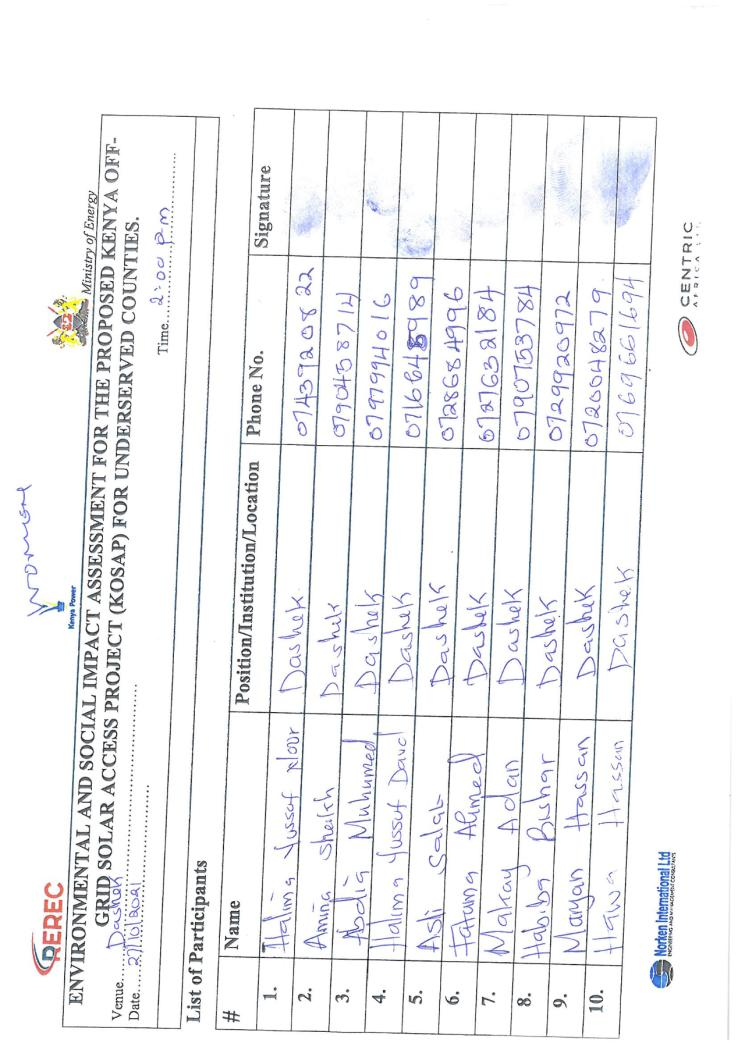 Women
REREC
Kenya Power
Ministry of Energy
ENVIRONMENTAL AND SOCIAL IMPACT ASSESSMENT FOR THE PROPOSED KENYA OFF-
GRID SOLAR ACCESS PROJECT (KOSAP) FOR UNDERSERVED COUNTIES.
Venue......Dashek......
Date......27/10/2021...... Time......2:00 pm......
List of Participants
# Name Position/Institution/Location Phone No. Signature
1. Halima Yussuf Noor Dashek. 0743920822
2. Amina Sheikh Dashek 0790458714
3. Abdia Muhumed Dashek 0797994016
4. Halima Yussuf Daud Dashek
5. Asli Salat Dashek 0728684996
6. Fatuma Ahmed Dashek 0727632184
7. Adan Dashek 0790753784
8. Habiba Bishar Dashek 0729920972
9. Maryan Hassan Dashek 0720048279.
10. Hawa Hassan Dashek 0769661694
Norken International Ltd
ENGINEERING AND MANAGEMENT CONSULTANTS
CENTRIC
AFRICA LTD.